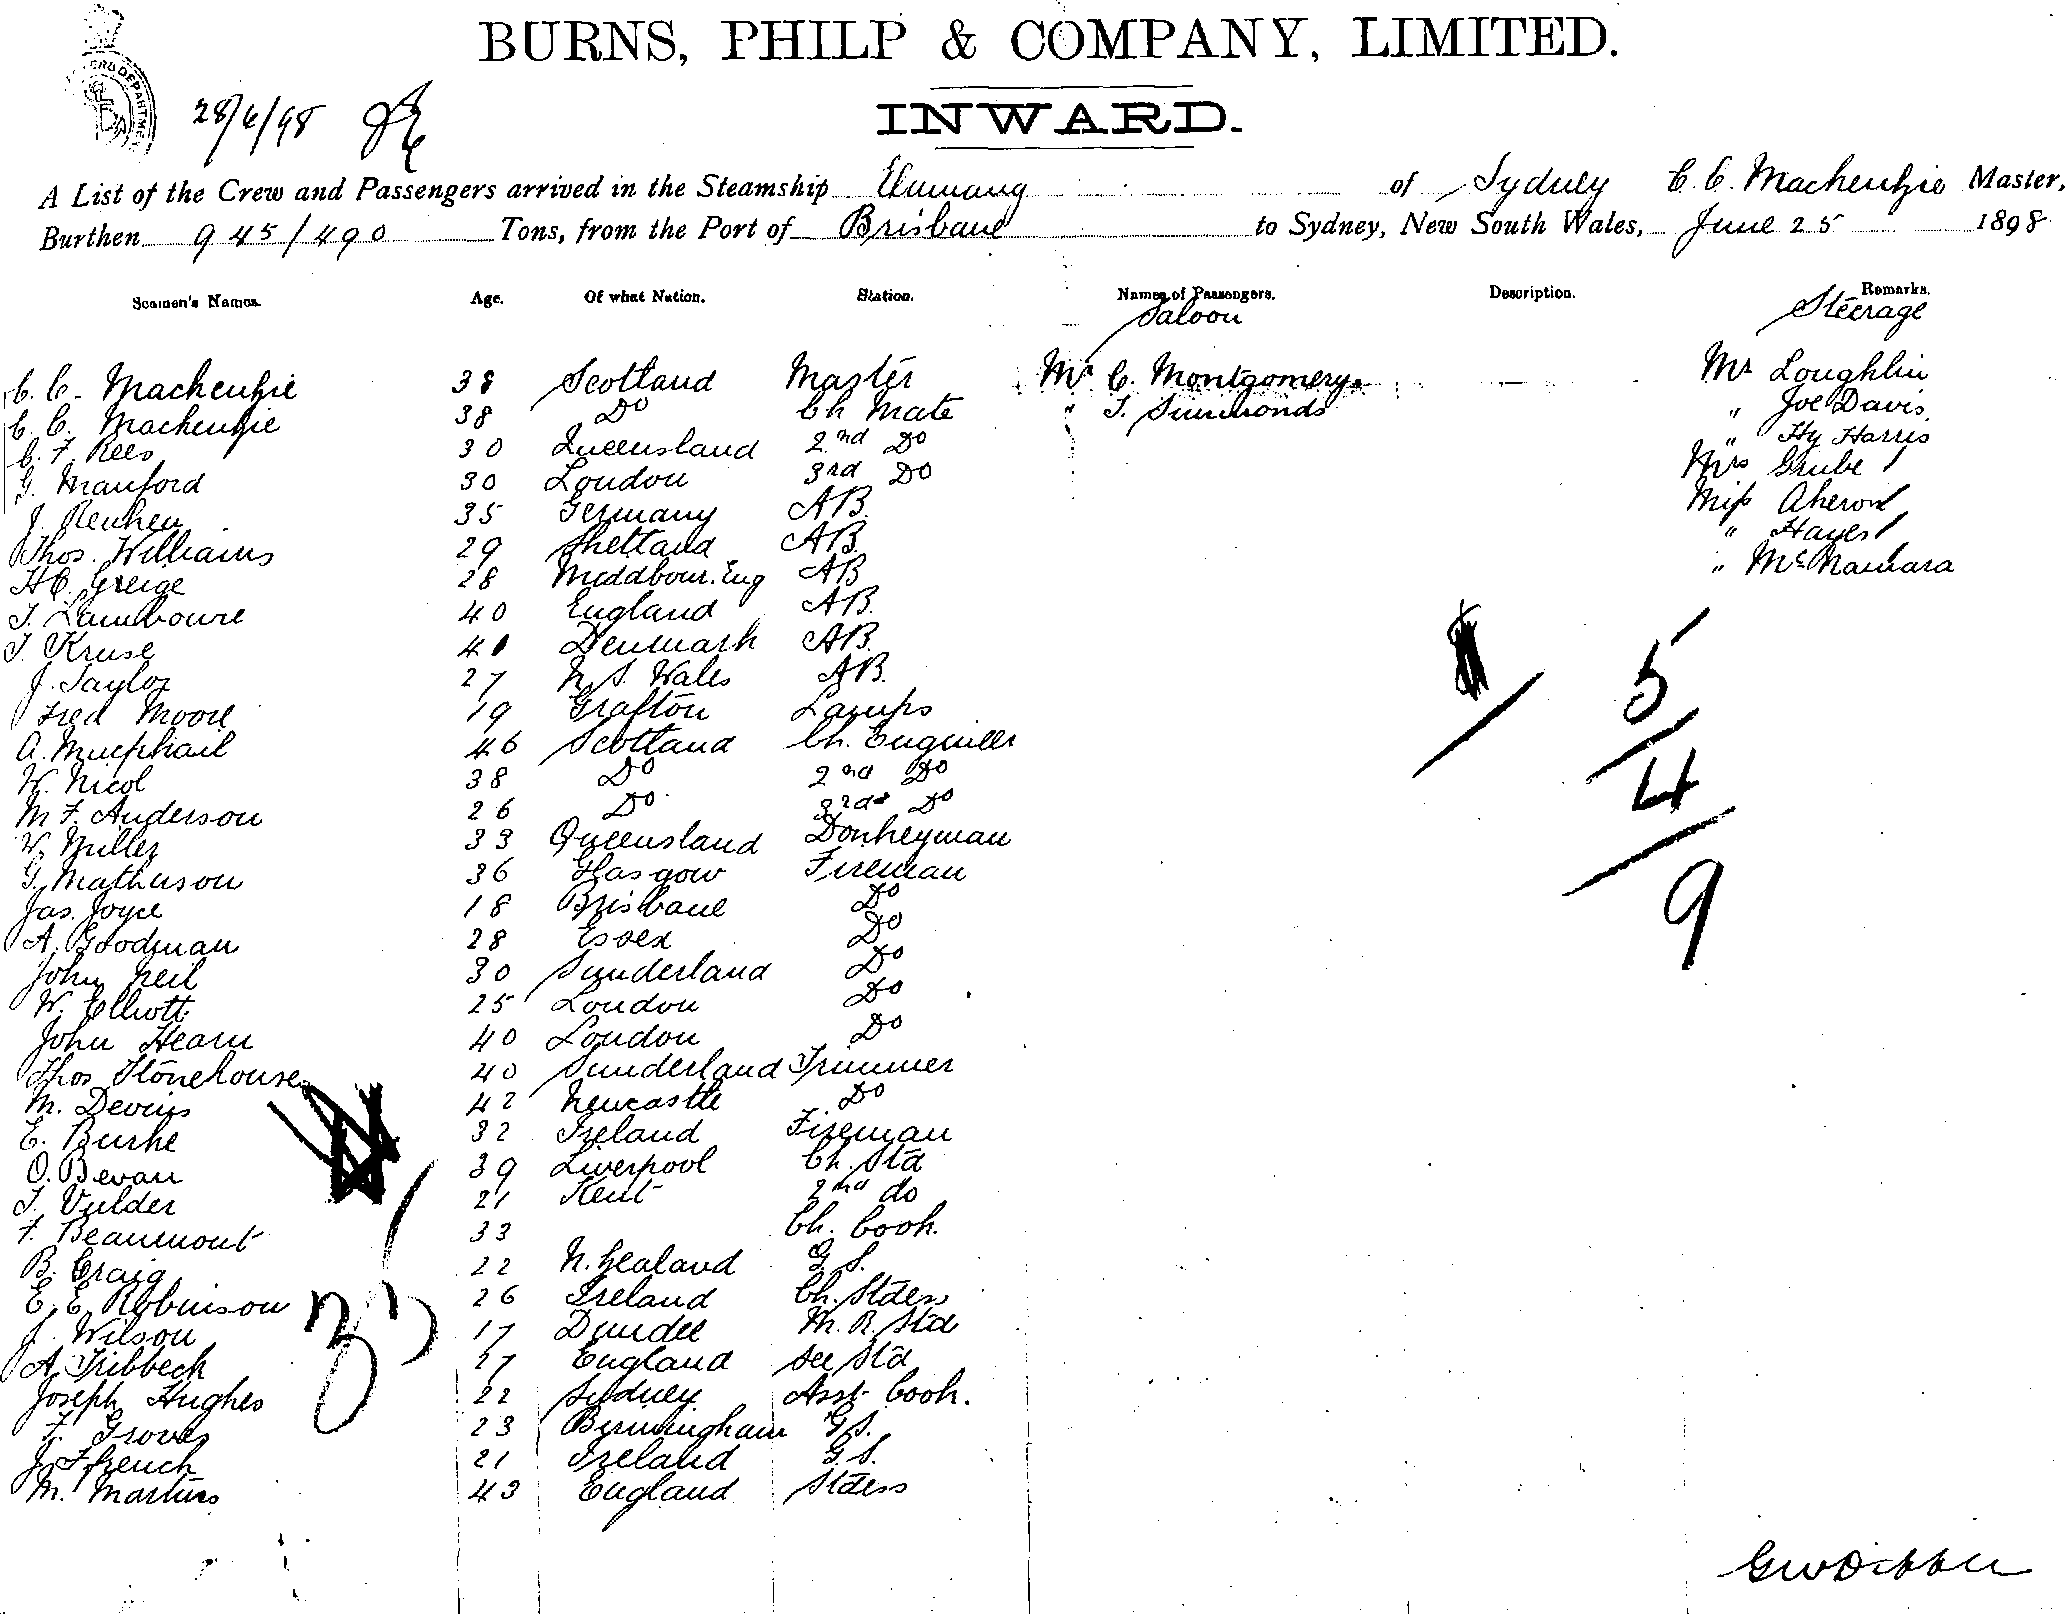 BURNS, PHILP & COMPANY, LIMITED.
INWARD.
28/6/98
A List of the Crew and Passengers arrived in the Steamship Elamang of Sydney C. C. Mackenzie Master,
Burthen 945/490 Tons, from the Port of Brisbane to Sydney, New South Wales, June 25 1898
Seamen's Names. Age. Of what Nation. Station. Names of Passengers. Description. Remarks.
Saloon Steerage
C. C. Mackenzie 38 Scotland Master Mr C. Montgomery Mr Loughlin
C. C. Mackenzie 38 Do Ch Mate " T. Simmonds " Joe Davis
C. F. Rees 30 Queensland 2nd Do " Hy Harris
G. Manford 30 London 3rd Do Mrs Grube
J. Reuhen 35 Germany AB Miss Aheron
Thos. Williams 29 Shetland AB " Hayes
H.C. Greige 28 Middbour. Eng AB " McNamara
T. Lambourre 40 England AB
T. Kruse 40 Denmark AB
J. Taylor 27 N. S. Wales AB
Fred Moore 19 Grafton Lamps
A. Mucphail 46 Scotland Ch. Engineer
W. Nicol 38 Do 2nd Do
M F. Anderson 26 Do 3rd Do
W. Miller 33 Queensland Donkeyman
G. Matheson 36 Glasgow Fireman
Jas. Joyce 18 Brisbane Do
A. Goodman 28 Essex Do
John Neil 30 Sunderland Do
W. Elliott 25 London Do
John Hearn 40 London Do
Thos Stonehouse 40 Sunderland Trimmer
M. Devins 42 Newcastle Do
E. Burke 32 Ireland Fireman
O. Bevan 39 Liverpool Ch. Std
T. Vulder 21 Kent 2nd do
F. Beaumont 33 Ch. Cook.
B. Craig 22 N. Zealand G. S.
E. E. Robinson 26 Ireland Ch. Stdess
J. Wilson 17 Dundee M. R. Std
A. Tribbeck 27 England Sec Std
Joseph Hughes 22 Sydney Asst Cook.
F. Groves 23 Birmingham G S.
J. Ffrench 21 Ireland G. S.
M. Martins 43 England Stdess
5
4
9